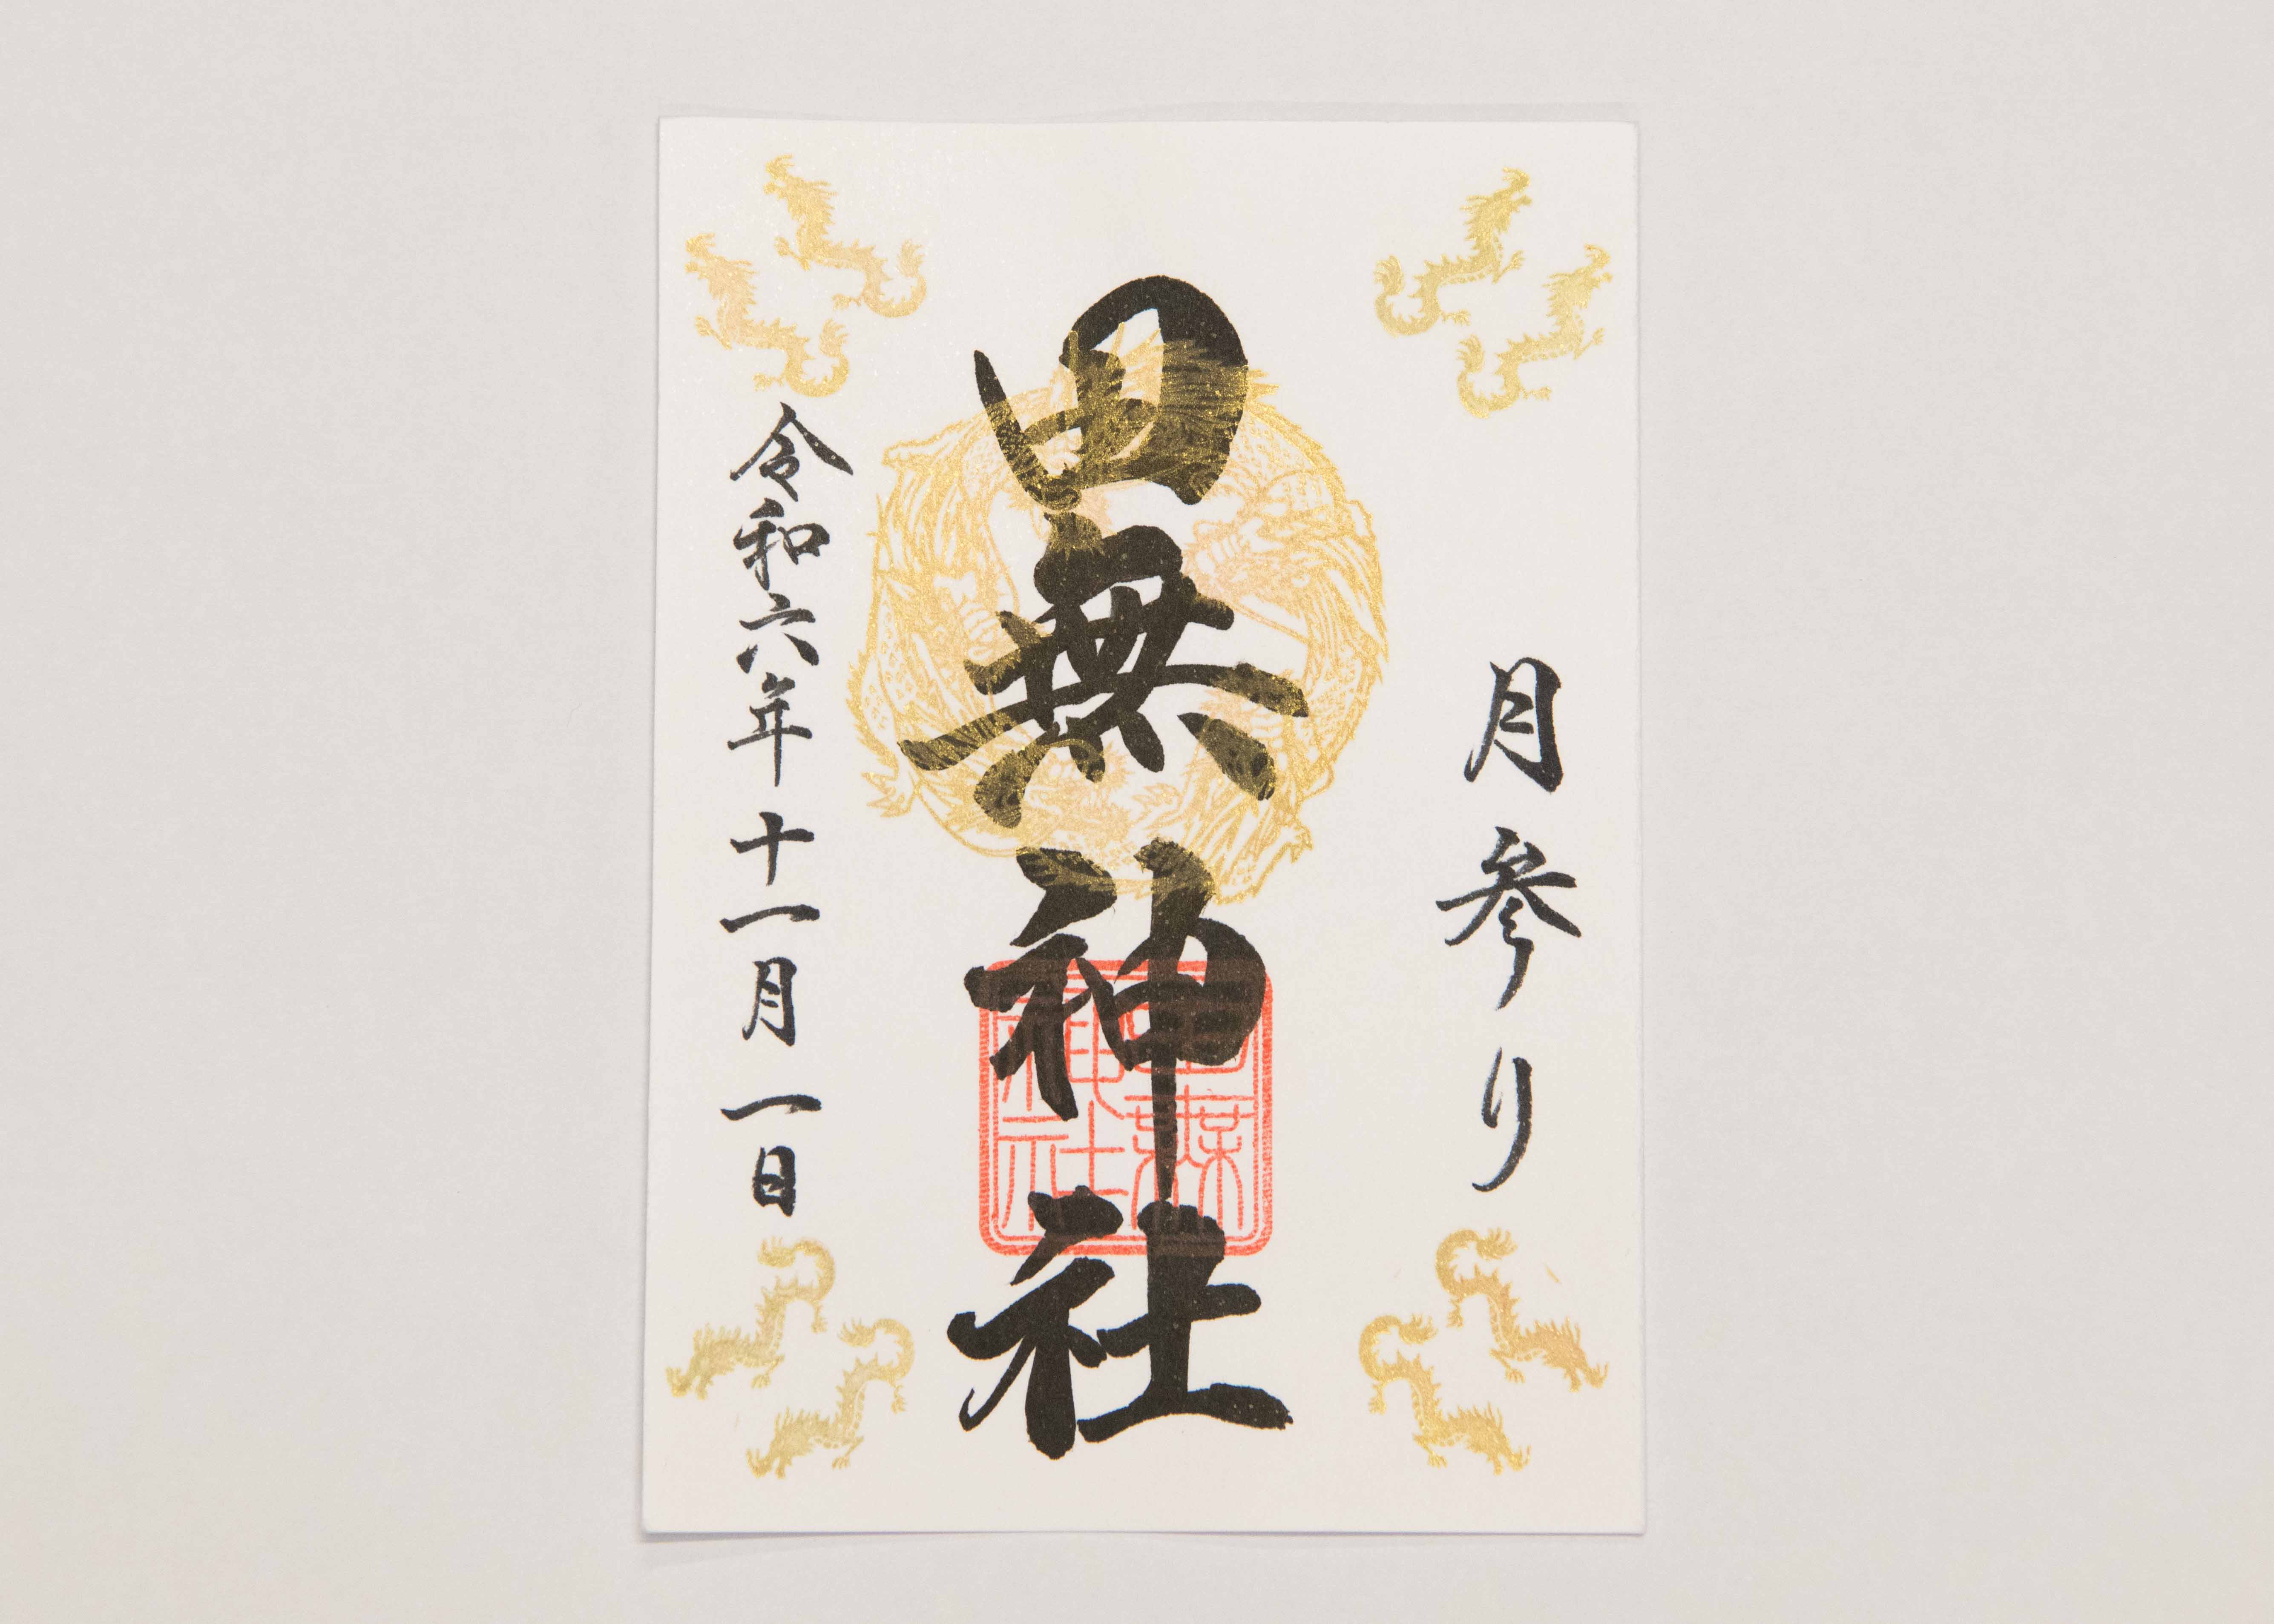 月参り
田無神社
令和六年十一月一日